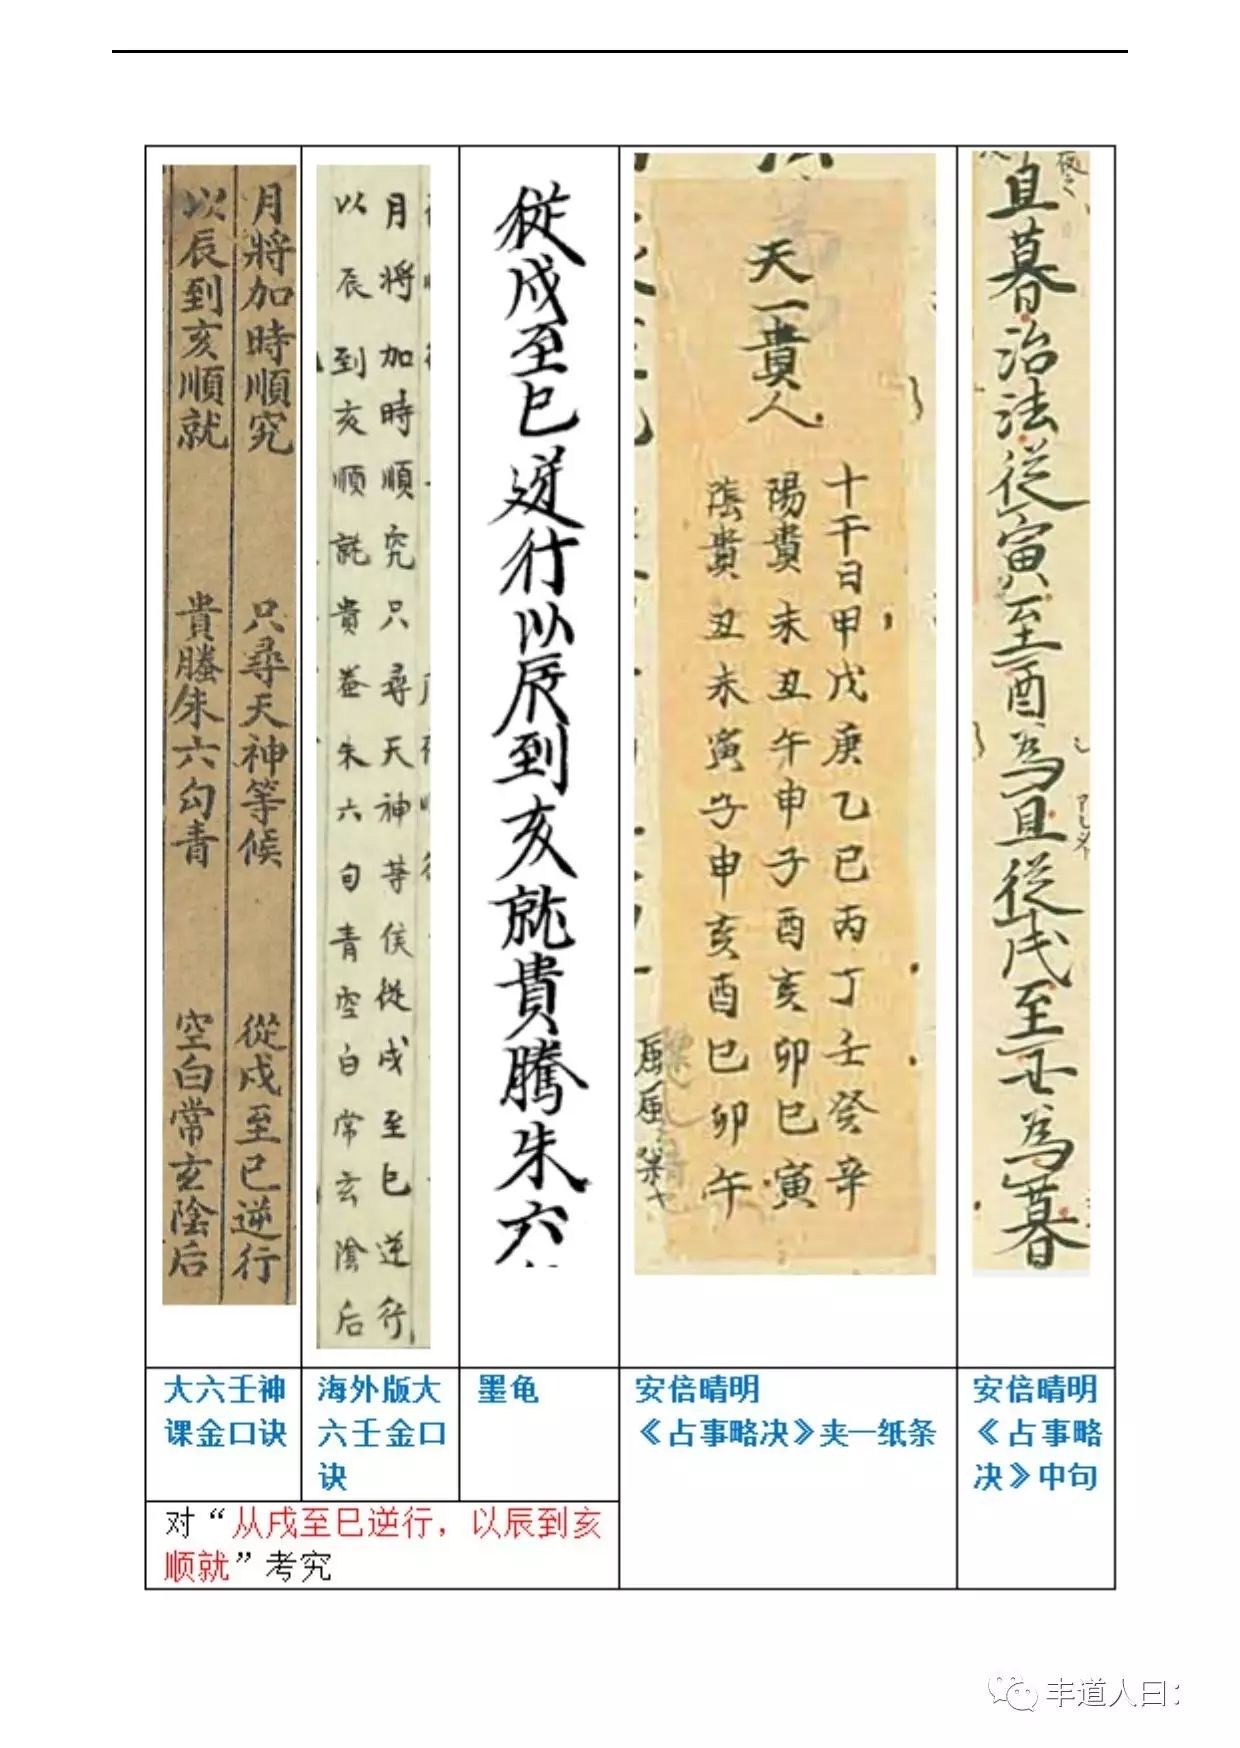 月將加時順究 只尋天神等候 從戌至巳逆行
以辰到亥順就 貴螣朱六勾青 空白常玄陰后
月將加時順究只尋天神等侯從戌至巳逆行
以辰到亥順就貴螣朱六句青空白常玄陰后
從戌至巳逆行以辰到亥就貴騰朱六
天一貴人
十干日甲戊庚乙己丙丁壬癸辛
陽貴未丑午申子酉亥卯巳寅
陰貴丑未寅子申亥酉巳卯午
旦暮治法從寅至酉為旦從戌至丑為暮
大六壬神
课金口诀
海外版大
六壬金口
诀
墨龟
安倍晴明
《占事略决》夹一纸条
安倍晴明
《占事略
决》中句
对“从戌至巳逆行，以辰到亥
顺就”考究
丰道人曰：